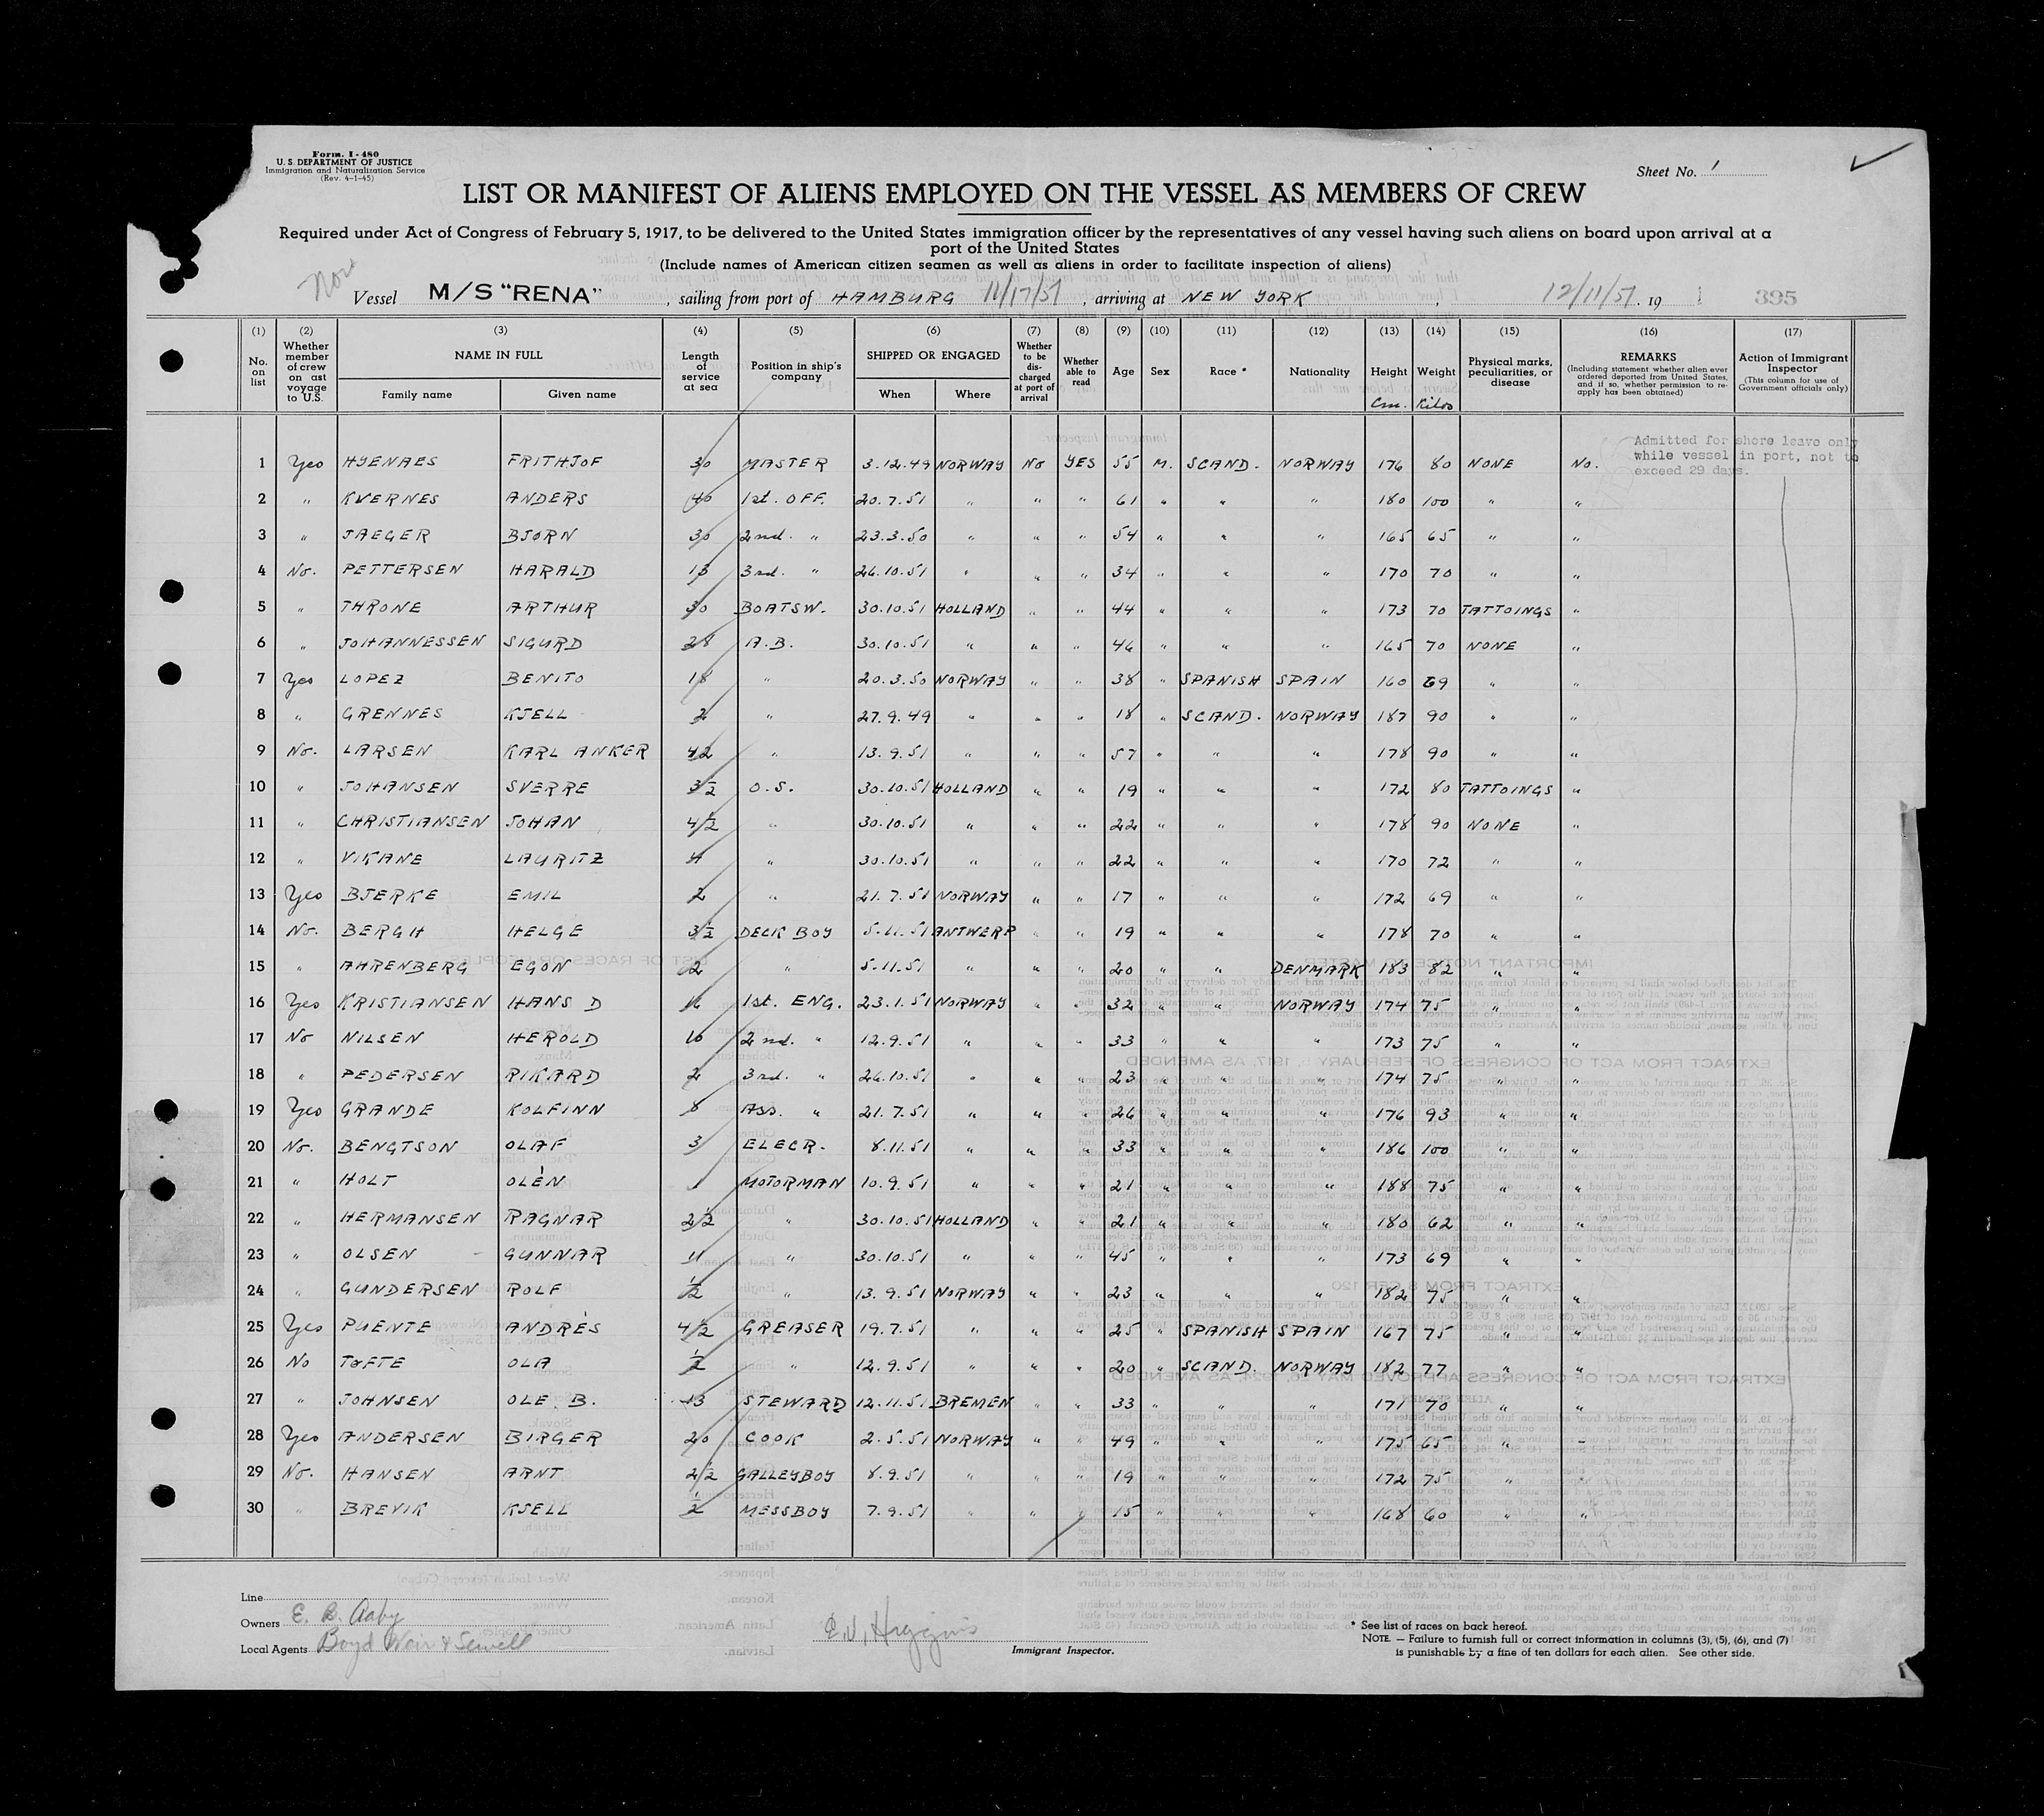 Form. I-480
U. S. DEPARTMENT OF JUSTICE
Immigration and Naturalization Service
(Rev. 4-1-45)
Sheet No. 1
LIST OR MANIFEST OF ALIENS EMPLOYED ON THE VESSEL AS MEMBERS OF CREW
Required under Act of Congress of February 5, 1917, to be delivered to the United States immigration officer by the representatives of any vessel having such aliens on board upon arrival at a
port of the United States
(Include names of American citizen seamen as well as aliens in order to facilitate inspection of aliens)
Nor
Vessel M/S "RENA", sailing from port of HAMBURG 11/17/51, arriving at NEW YORK, 12/11/51. 19 395
(1) (2) (3) (4) (5) (6) (7) (8) (9) (10) (11) (12) (13) (14) (15) (16) (17)
No. on list Whether member of crew on ast voyage to U.S. NAME IN FULL Family name Given name Length of service at sea Position in ship's company SHIPPED OR ENGAGED When Where Whether to be discharged at port of arrival Whether able to read Age Sex Race * Nationality Height Cm. Weight Kilos Physical marks, peculiarities, or disease REMARKS (Including statement whether alien ever ordered deported from United States, and if so, whether permission to re-apply has been obtained) Action of Immigrant Inspector (This column for use of Government officials only)
Admitted for shore leave only
while vessel in port, not to
exceed 29 days.
1 Yes HYENAES FRITHJOF 30 MASTER 3.12.49 NORWAY No YES 55 M. SCAND. NORWAY 176 80 NONE No.
2 " KVERNES ANDERS 40 1st. OFF. 20.7.51 " " " 61 " " " 180 100 " "
3 " JAEGER BJORN 30 2nd. " 23.3.50 " " " 54 " " " 165 65 " "
4 No. PETTERSEN HARALD 13 3rd. " 26.10.51 " " " 34 " " " 170 70 " "
5 " THRONE ARTHUR 30 BOATSW. 30.10.51 HOLLAND " " 44 " " " 173 70 TATTOINGS "
6 " JOHANNESSEN SIGURD 28 A.B. 30.10.51 " " " 46 " " " 165 70 NONE "
7 Yes LOPEZ BENITO 18 " 20.3.50 NORWAY " " 38 " SPANISH SPAIN 160 69 " "
8 " GRENNES KJELL 2 " 27.9.49 " " " 18 " SCAND. NORWAY 187 90 " "
9 No. LARSEN KARL ANKER 42 " 13.9.51 " " " 57 " " " 178 90 " "
10 " JOHANSEN SVERRE 3½ O.S. 30.10.51 HOLLAND " " 19 " " " 172 80 TATTOINGS "
11 " CHRISTIANSEN JOHAN 4½ " 30.10.51 " " " 22 " " " 178 90 NONE "
12 " VIKANE LAURITZ 4 " 30.10.51 " " " 22 " " " 170 72 " "
13 Yes BJERKE EMIL 2 " 21.7.51 NORWAY " " 17 " " " 172 69 " "
14 No. BERGH HELGE 3½ DECK BOY 5.11.51 ANTWERP " " 19 " " " 178 70 " "
15 " AHRENBERG EGON 2 " 5.11.51 " " " 20 " " DENMARK 183 82 " "
16 Yes KRISTIANSEN HANS D 16 1st. ENG. 23.1.51 NORWAY " " 32 " " NORWAY 174 75 " "
17 No NILSEN HEROLD 10 2nd. " 12.9.51 " " " 33 " " " 173 75 " "
18 " PEDERSEN RIKARD 2 3rd. " 26.10.51 " " " 23 " " " 174 75 " "
19 Yes GRANDE KOLFINN 8 Ass. " 21.7.51 " " " 26 " " " 176 93 " "
20 No. BENGTSON OLAF 3 ELECR. 8.11.51 " " " 33 " " " 186 100 " "
21 " HOLT OLÈN 1 MOTORMAN 10.9.51 " " " 21 " " " 188 75 " "
22 " HERMANSEN RAGNAR 2½ " 30.10.51 HOLLAND " " 21 " " " 180 62 " "
23 " OLSEN GUNNAR 11 " 30.10.51 " " " 45 " " " 173 69 " "
24 " GUNDERSEN ROLF ½ " 13.9.51 NORWAY " " 23 " " " 182 75 " "
25 Yes PUENTE ANDRÈS 4½ GREASER 19.7.51 " " " 25 " SPANISH SPAIN 167 75 " "
26 No TØFTE OLA ½ " 12.9.51 " " " 20 " SCAND. NORWAY 182 77 " "
27 " JOHNSEN OLE B. 13 STEWARD 12.11.51 BREMEN " " 33 " " " 171 70 " "
28 Yes ANDERSEN BIRGER 20 COOK 2.5.51 NORWAY " " 49 " " " 175 65 " "
29 No. HANSEN ARNT 2½ GALLEYBOY 8.9.51 " " " 19 " " " 172 75 " "
30 " BREVIK KJELL ½ MESSBOY 7.9.51 " " " 15 " " " 168 60 " "
Line
Owners E. B. Aaby
Local Agents Boyd Weir & Sewell
E. J. Higgins
Immigrant Inspector.
* See list of races on back hereof.
NOTE. — Failure to furnish full or correct information in columns (3), (5), (6), and (7)
is punishable by a fine of ten dollars for each alien. See other side.